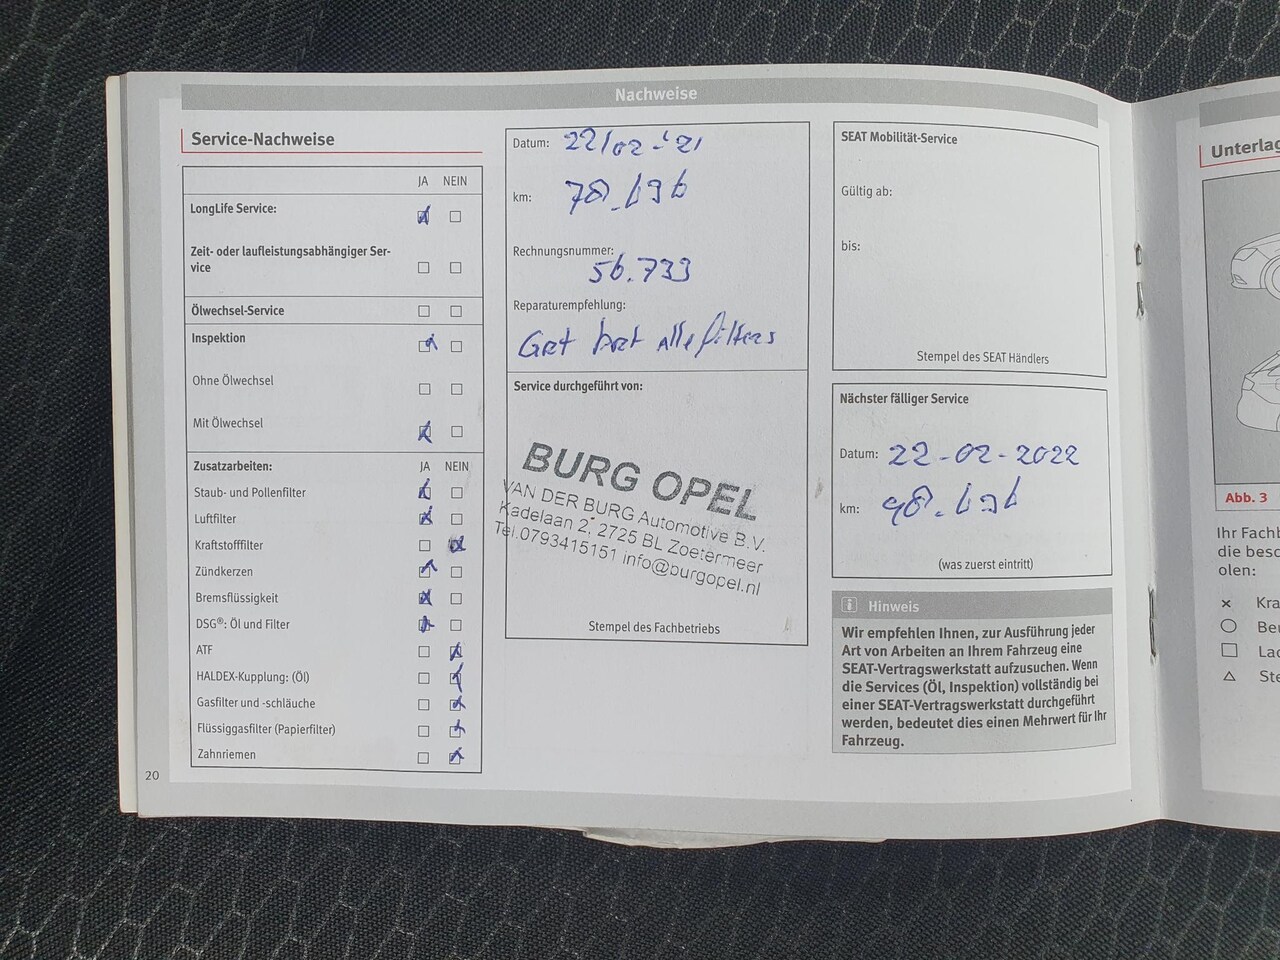 Nachweise
Service-Nachweise
JA NEIN
LongLife Service:
Zeit- oder laufleistungsabhängiger Ser-
vice
Ölwechsel-Service
Inspektion
Ohne Ölwechsel
Mit Ölwechsel
Zusatzarbeiten: JA NEIN
Staub- und Pollenfilter
Luftfilter
Kraftstofffilter
Zündkerzen
Bremsflüssigkeit
DSG®: Öl und Filter
ATF
HALDEX-Kupplung: (Öl)
Gasfilter und -schläuche
Flüssiggasfilter (Papierfilter)
Zahnriemen
20
Datum: 22/02-'21
km: 78.696
Rechnungsnummer:
56.733
Reparaturempfehlung:
alle filters
Service durchgeführt von:
BURG OPEL
VAN DER BURG Automotive B.V.
Kadelaan 2, 2725 BL Zoetermeer
Tel.0793415151 info@burgopel.nl
Stempel des Fachbetriebs
SEAT Mobilität-Service
Gültig ab:
bis:
Stempel des SEAT Händlers
Nächster fälliger Service
Datum: 22-02-2022
km: 98.696
(was zuerst eintritt)
i Hinweis
Wir empfehlen Ihnen, zur Ausführung jeder
Art von Arbeiten an Ihrem Fahrzeug eine
SEAT-Vertragswerkstatt aufzusuchen. Wenn
die Services (Öl, Inspektion) vollständig bei
einer SEAT-Vertragswerkstatt durchgeführt
werden, bedeutet dies einen Mehrwert für Ihr
Fahrzeug.
Unterlag
Abb. 3
Ihr Fachb
die besc
olen:
Kra
Ber
Lac
Ste